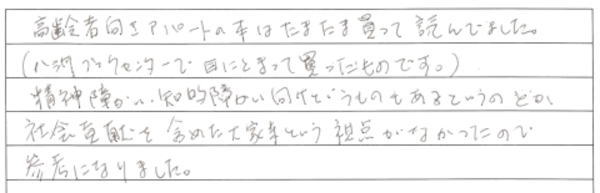 高齢者向けアパートの本はたまたま買って読んでました。
(八重洲ブックセンターで目にとまって買ったものです。)
精神障がい、知的障がい向けというものもあるというのとか、
社会貢献を含めた大家業という視点がなかったので
参考になりました。